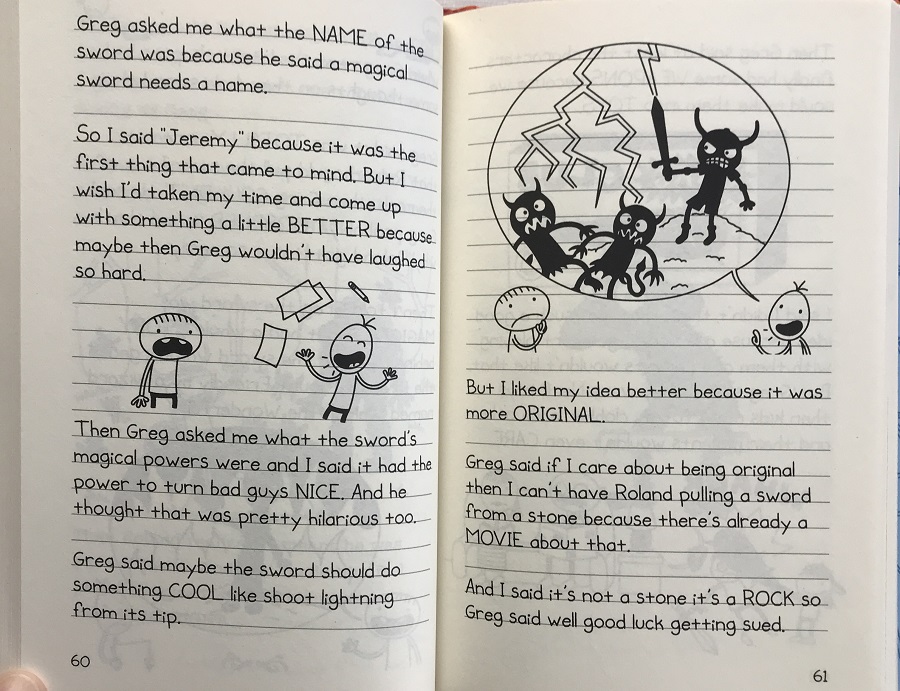 Greg asked me what the NAME of the
sword was because he said a magical
sword needs a name.
So I said "Jeremy" because it was the
first thing that came to mind. But I
wish I'd taken my time and come up
with something a little BETTER because
maybe then Greg wouldn't have laughed
so hard.
Then Greg asked me what the sword's
magical powers were and I said it had the
power to turn bad guys NICE. And he
thought that was pretty hilarious too.
Greg said maybe the sword should do
something COOL like shoot lightning
from its tip.
60
But I liked my idea better because it was
more ORIGINAL.
Greg said if I care about being original
then I can't have Roland pulling a sword
from a stone because there's already a
MOVIE about that.
And I said it's not a stone it's a ROCK so
Greg said well good luck getting sued.
61